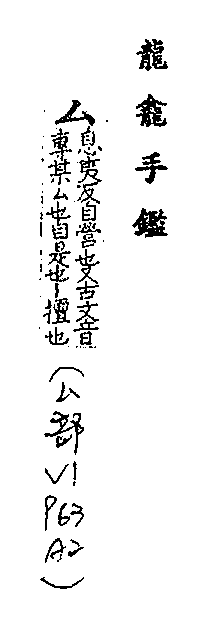 龍龕手鑑
厶
息夷反自營也又古文音
專某厶也自是也丨擅也
(厶部 V1 P63 A2)